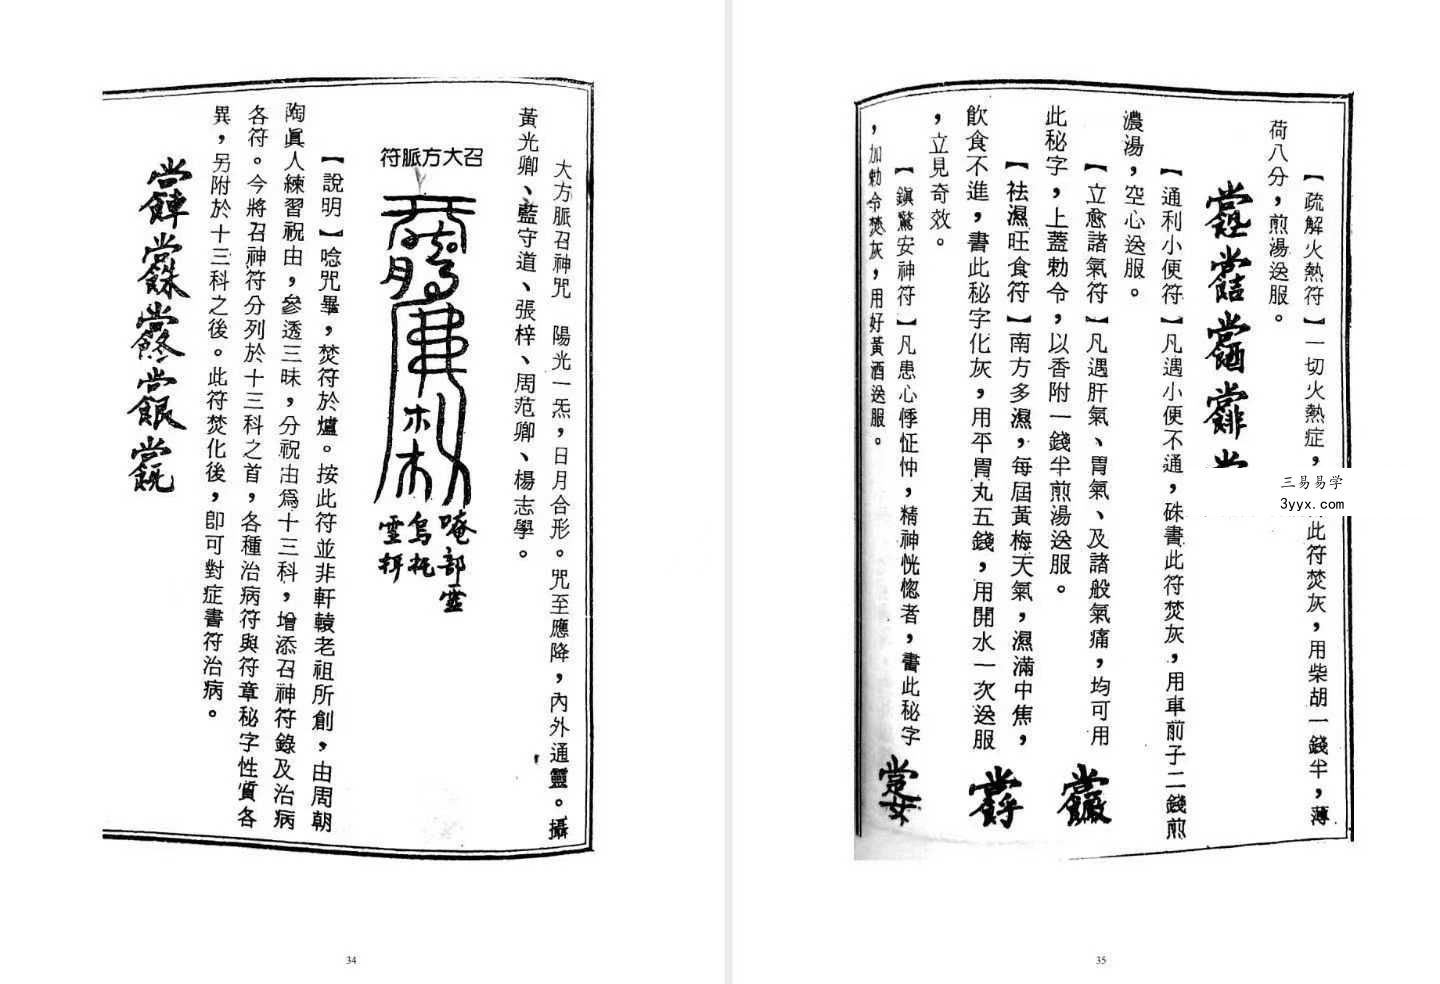 大方脈召神咒　陽光一炁，日月合形。咒至應降，內外通靈。攝
黃光卿、藍守道、張梓、周范卿、楊志學。
召大方脈符
唵部靈
烏𠇾
靈䍮
【說明】唸咒畢，焚符於爐。按此符並非軒轅老祖所創，由周朝
陶眞人練習祝由，參透三昧，分祝由爲十三科，增添召神符錄及治病
各符。今將召神符分列於十三科之首，各種治病符與符章秘字性質各
異，另附於十三科之後。此符焚化後，卽可對症書符治病。
34
【疏解火熱符】一切火熱症，此符焚灰，用柴胡一錢半，薄
荷八分，煎湯送服。
【通利小便符】凡遇小便不通，硃書此符焚灰，用車前子二錢煎
濃湯，空心送服。
【立愈諸氣符】凡遇肝氣、胃氣、及諸般氣痛，均可用
此秘字，上蓋勅令，以香附一錢半煎湯送服。
【祛濕旺食符】南方多濕，每屆黃梅天氣，濕滿中焦，
飲食不進，書此秘字化灰，用平胃丸五錢，用開水一次送服
，立見奇效。
【鎭驚安神符】凡患心悸怔忡，精神恍惚者，書此秘字
，加勅令焚灰，用好黃酒送服。
三易易学
3yyx.com
35